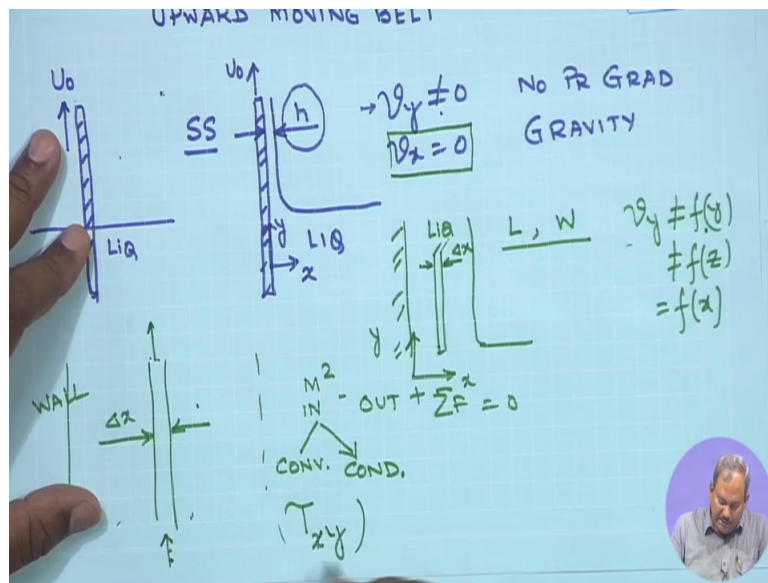 UPWARD MOVING BELT
U₀
LIQ
U₀
SS
h
y
LIQ
x
→ v_y ≠ 0
v_x = 0
NO PR GRAD
GRAVITY
LIQ
Δx
y
x
L, W
v_y ≠ f(y)
≠ f(z)
= f(x)
WALL
Δx
M²
IN - OUT + ΣF = 0
CONV. COND.
(τ_xy)